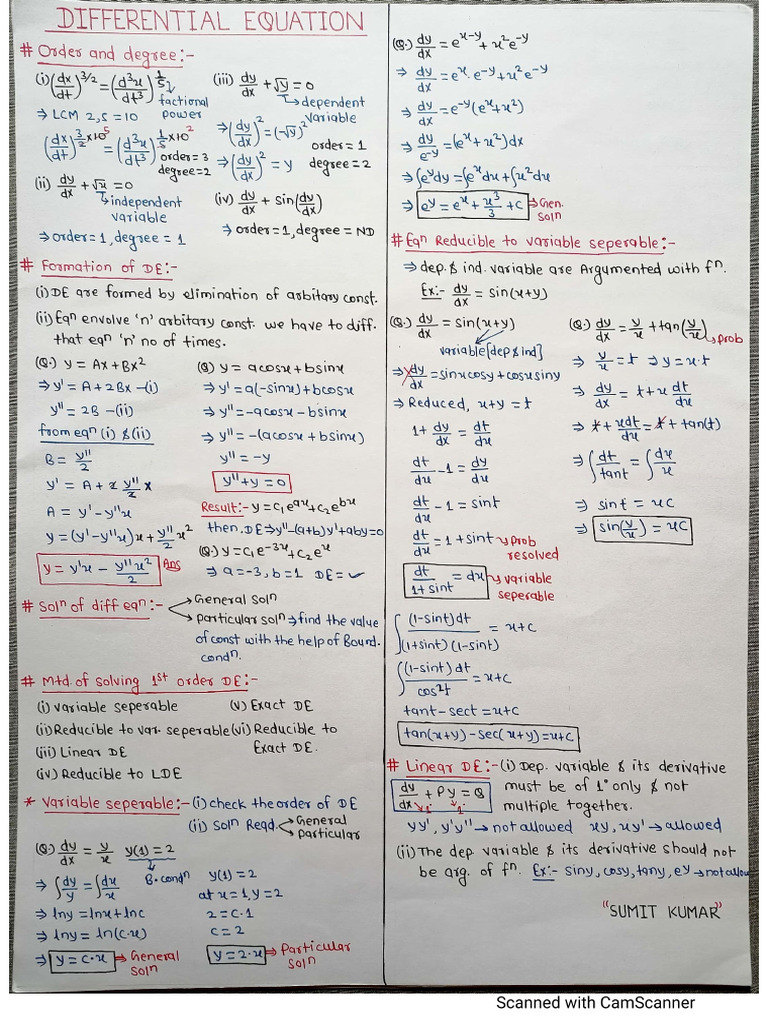 DIFFERENTIAL EQUATION
# Order and degree:-
(i) (dx/dt)^3/2 = (d³x/dt³)^1/5 → factional power
⇒ LCM 2,5 = 10
(dx/dt)^3/2×10^5 = (d³x/dt³)^1/5×10^2
order=3
degree=2
(ii) dy/dx + √x = 0
↳ independent variable
⇒ order=1, degree=1
(iii) dy/dx + √y = 0
↳ dependent variable
⇒ (dy/dx)² = (-√y)²
order=1
⇒ (dy/dx)² = y degree=2
(iv) dy/dx + sin(dy/dx)
⇒ order=1, degree=ND
# Formation of DE:-
(i) DE are formed by elimination of arbitary const.
(ii) Eqn envolve 'n' arbitary const. we have to diff.
that eqn 'n' no of times.
(Q:) y = Ax + Bx²
⇒ y' = A + 2Bx -(i)
y'' = 2B -(ii)
from eqn (i) & (ii)
B = y''/2
y' = A + 2 y''/2 x
A = y' - y''x
y = (y' - y''x)x + y''/2 x²
y = y'x - y''x²/2 Ans
(Q) y = acosx + bsinx
⇒ y' = a(-sinx) + bcosx
⇒ y'' = -acosx - bsinx
⇒ y'' = -(acosx + bsinx)
y'' = -y
y'' + y = 0
Result:- y = c₁e^ax + c₂e^bx
then, DE ⇒ y'' - (a+b)y' + aby = 0
(Q:) y = c₁e^-3x + c₂e^x
⇒ a = -3, b = 1 DE = ✓
# Soln of diff eqn:- → General Soln
→ particular soln ⇒ find the value
of const with the help of Bound.
condn.
# Mtd. of solving 1st order DE:-
(i) variable seperable (v) Exact DE
(ii) Reducible to var. seperable (vi) Reducible to
(iii) Linear DE Exact DE.
(iv) Reducible to LDE
* Variable seperable:- (i) check the order of DE
(ii) Soln Reqd. → General
→ particular
(Q:) dy/dx = y/x y(1) = 2
↳ B.condn
⇒ ∫dy/y = ∫dx/x
⇒ lny = lnx + lnc
⇒ lny = ln(c.x)
⇒ y = c.x ⇒ General Soln
y(1) = 2
at x=1, y=2
2 = c.1
c = 2
y = 2.x ⇒ Particular Soln
(Q:) dy/dx = e^x-y + x²e^-y
⇒ dy/dx = e^x.e^-y + x²e^-y
⇒ dy/dx = e^-y(e^x + x²)
⇒ dy/e^-y = (e^x + x²)dx
⇒ ∫e^y dy = ∫e^x dx + ∫x² dx
⇒ e^y = e^x + x³/3 + C ⇒ Gen. Soln
# Eqn Reducible to variable seperable:-
⇒ dep. & ind. variable are Argumented with fn.
Ex:- dy/dx = sin(x+y)
(Q:) dy/dx = sin(x+y)
variable [dep & ind]
⇒ dy/dx = sinxcosy + cosxsiny
⇒ Reduced, x+y = t
1 + dy/dx = dt/dx
dt/dx - 1 = dy/dx
dt/dx - 1 = sint
dt/dx = 1 + sint → prob resolved
dt/1+sint = dx → variable seperable
∫(1-sint)dt/(1+sint)(1-sint) = x+c
∫(1-sint)dt/cos²t = x+c
tant - sect = x+c
tan(x+y) - sec(x+y) = x+c
(Q:) dy/dx = y/x + tan(y/x) → prob
⇒ y/x = t ⇒ y = x.t
⇒ dy/dx = t + x dt/dx
⇒ t + xdt/dx = t + tan(t)
⇒ ∫dt/tant = ∫dx/x
⇒ sint = xc
⇒ sin(y/x) = xc
# Linear DE:- (i) Dep. variable & its derivative
dy/dx + Py = Q must be of 1° only & not
1° 1° multiple together.
yy', y'y'' → not allowed xy, xy' → allowed
(ii) The dep variable & its derivative should not
be arg. of fn. Ex:- siny, cosy, tany, e^y → not allow
"SUMIT KUMAR"
Scanned with CamScanner